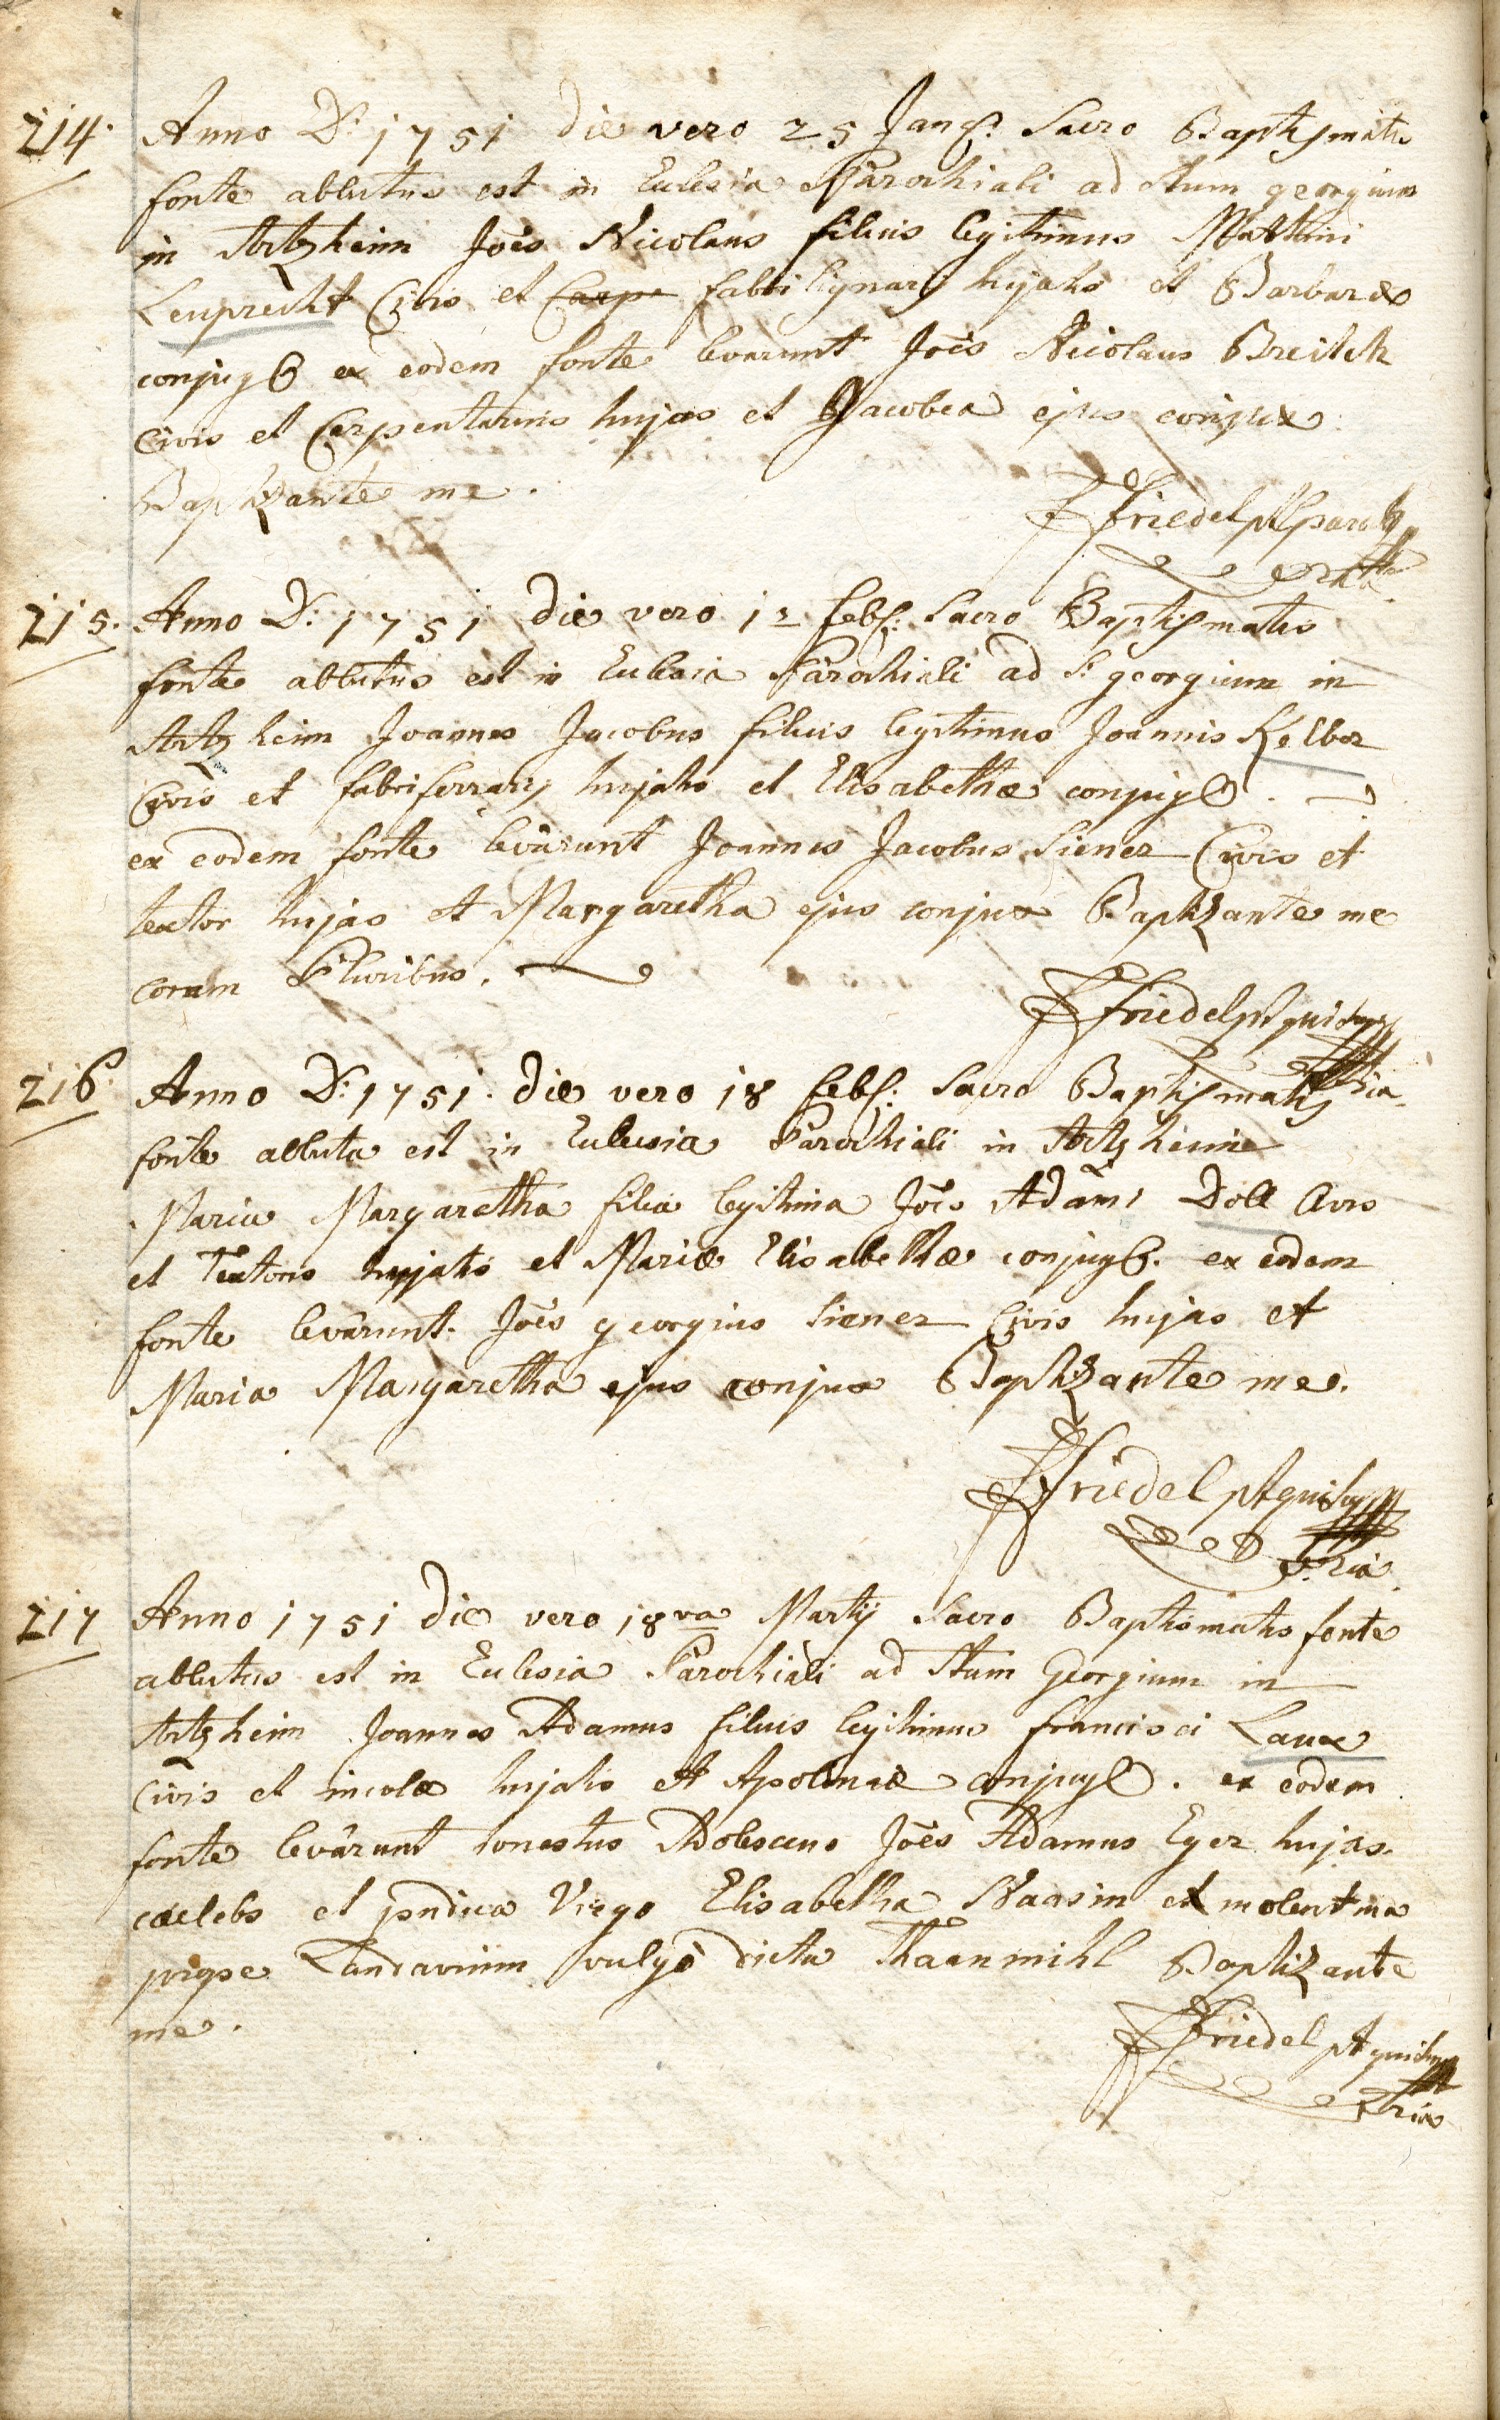 214. Anno D: 1751 die vero 25 Jan. Sacro Baptismatis
fonte ablutus est in Ecclesia Parochiali ad Stum georgium
in Artzheim Joes Nicolaus filius legitimus Mathini
Leuprecht Civis et Carpe fabri lignarij hujatis et Barbarae
conjug ex eodem fonte levarunt Joes Nicolaus Breitsch
Civis et Carpentarius hujas et Jacobea ejus conjux
Baptizante me.
Friedel
215. Anno D: 1751 die vero 12 feb: Sacro Baptismatis
fonte ablutus est in Ecclesia Parochiali ad S. georgium in
Artzheim Joannes Jacobus filius legitimus Joannis Kelber
Civis et fabri ferrarij hujatis et Elisabethae conjug.
ex eodem fonte levârunt Joannes Jacobus Siener Civis et
textor hujas et Margaretha ejus conjux Baptizante me
coram Pluribus.
Friedel
216. Anno D: 1751. die vero 18 feb: Sacro Baptismatis
fonte abluta est in Ecclesia Parochiali in Artzheim
Maria Margaretha filia legitima Joes Adami Doll Civis
et Textoris hujatis et Mariae Elisabethae conjug. ex eodem
fonte levârunt. Joes georgius Siener Civis hujas et
Maria Margaretha ejus conjux Baptizante me.
Friedel
217 Anno 1751 die vero 18va Martij Sacro Baptismatis fonte
ablutus est in Eclesia Parochiali ad Stum Georgium in
Artzheim Joannes Adamus filius legitimus francisci Laux
Civis et incolae hujatis et Apoloniae conjug. ex eodem
fonte levârunt honestus Adolescens Joes Adamus Eger hujas.
caelebs et pudica Virgo Elisabetha Naasin ex molentina
prope Landavium vulgò dicta Thaanmihl Baptizante
me.
Friedel